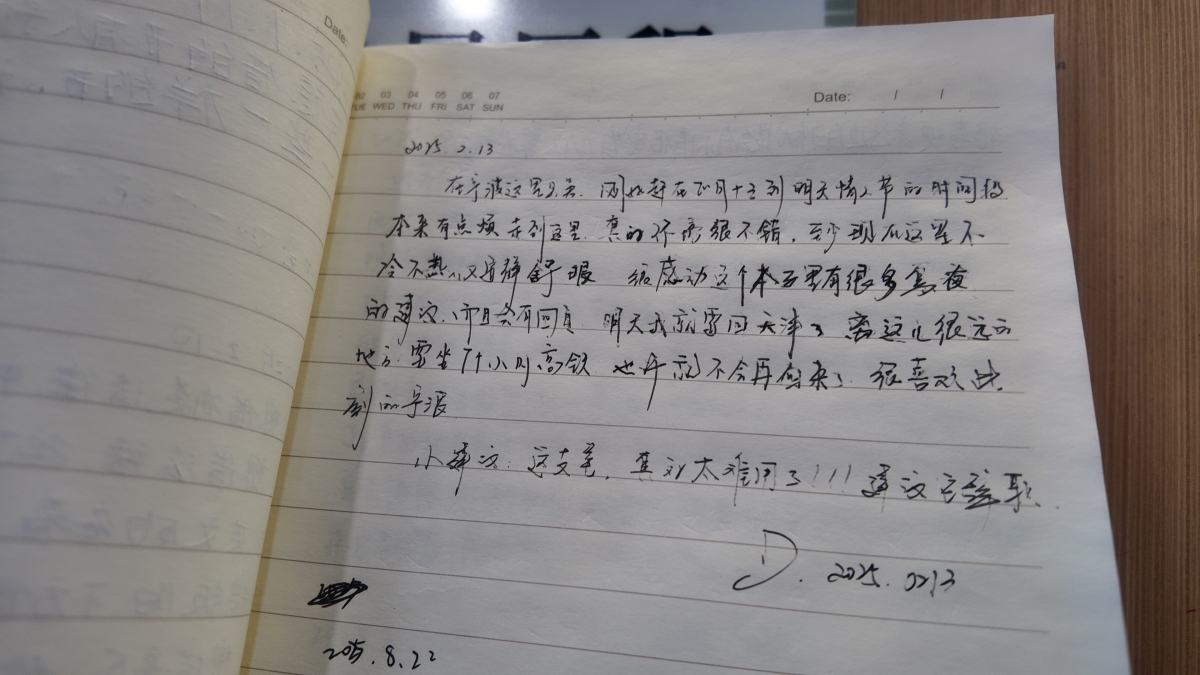 Date:
02 03 04 05 06 07
TUE WED THU FRI SAT SUN
Date: / /
2025.2.13
在宁波这里出差.刚好赶在正月十五到明天情人节的时间段
本来有点烦 来到这里.真的环境很不错,至少现在这里不
冷不热.很安静舒服 很感动这个本子里有很多
的建议.而且会有回复 明天我就要回天津了 离这儿很远的
地方.要坐7个小时高铁 也许就不会再回来了.很喜欢此
刻的宁波
小建议:这支笔,真的太难用了!!!建议它
D.2025.0213
2025.8.22